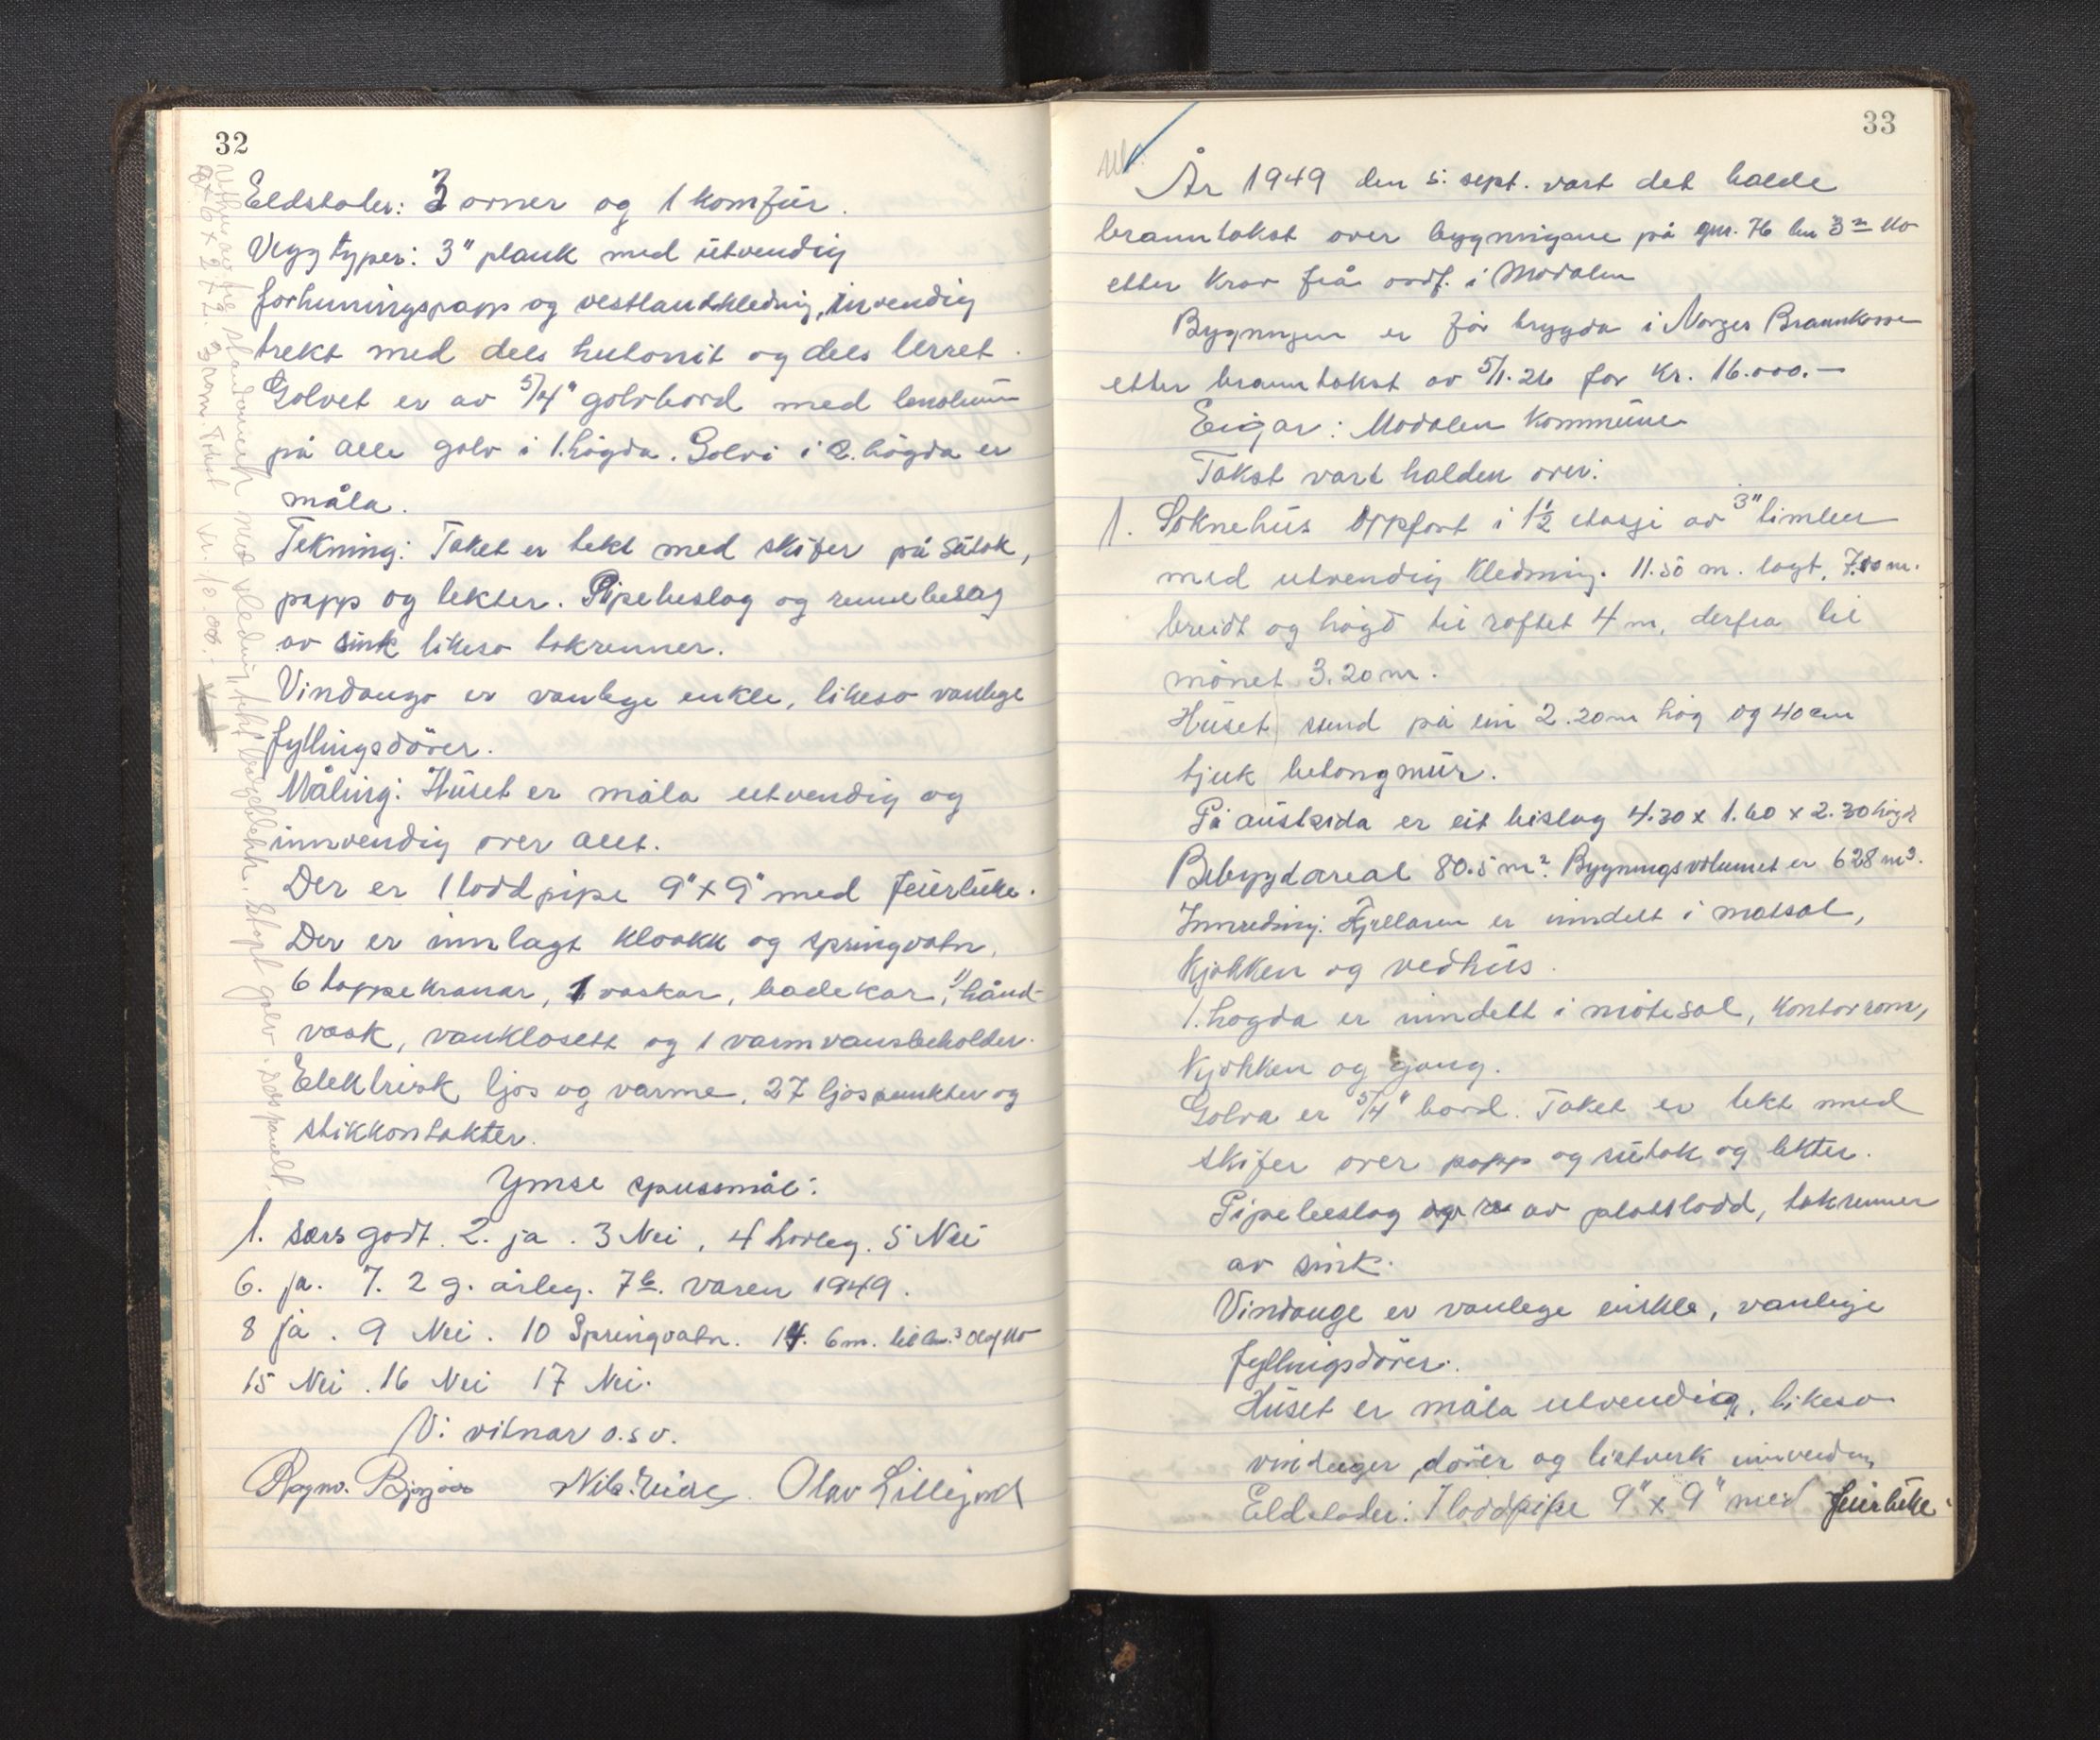 32
Eldstader: 3 omner og 1 komfür.
Vegg typer: 3" plank med ütvendig
forhuningspapp og vestlandskledning, invendig
trekt med dels hutonit og dels lerret.
Golvet er av 5/4" golvbord med lenoleum
på alle golv i 1. høgda. Golvi i 2. høgda er
måla.
Tekning: Taket er tekt med skifer på sutak,
papp og lekter. Pipebeslag og rennebeslag
av sink likeso takrenner.
Vindaugo er vanlege enkle, likeso vanlege
fyllingsdører.
Måling: Hüset er måla utvendig og
innvendig over allt.
Der er 1 loddpipe 9" x 9" med feierluke.
Der er innlagt kloakk og springvatn,
6 tappekranar, 1 vaskar, badekar, 1 hånd-
vask, vanklosett og 1 varmvansbeholder.
Elektrisk ljos og varme, 27 ljospunkter og
stikkontakter.
Ymse spussmål:
1. særs godt. 2. ja. 3 Nei, 4 Laveleg. 5 Nei
6. ja. 7. 2 g. årleg. 7b. våren 1949.
8 ja. 9 Nei. 10 Springvatn. 14. 6 m. til bn. 3 Olaf Mo
15 Nei. 16 Nei 17 Nei.
Vi vitnar o.s.v.
Nils Eide Olav Lillejord
33
År 1949 den 5. sept. vart det halde
branntakst over bygningane på gnr. 76 bn 3 Mo
etter krav frå ordf. i Modalen
Bygningen er før trygda i Norges Brannkasse
etter branntakst av 5/1.26 for kr. 16.000.-
Eigar: Modalen kommune
Takst vart halden over:
1. Soknehüs oppført i 1 1/2 etasje av 3" timber
med utvendig kledning. 11.50 m. langt, 7.00 m.
breidt og høgd til raftet 4 m, derfra til
mønet 3.20 m.
Hüset stend på ein 2.20 m høg og 40 cm
tjuk betongmür.
På austsida er eit bislag 4.30 x 1.60 x 2.30 høgd
Bebygd areal 80.5 m². Bygningsvolumet er 628 m³.
Innreding: Kjellaren er inndelt i matsal,
kjøkken og vedhüs.
1. høgda er inndelt i møtesal, kontorrom,
kjøkken og gang.
Golva er 5/4" bord. Taket er tekt med
skifer over papp og sutak og lekter.
Pipebeslag og re av platelodd, takrenner
av sink.
Vindauge er vanlege enkle, vanlige
fyllingsdører.
Hüset er måla utvendig, likeso
vindauger, dører og listverk innvendig
Eldstader: 1 loddpipe 9" x 9" med feierluke